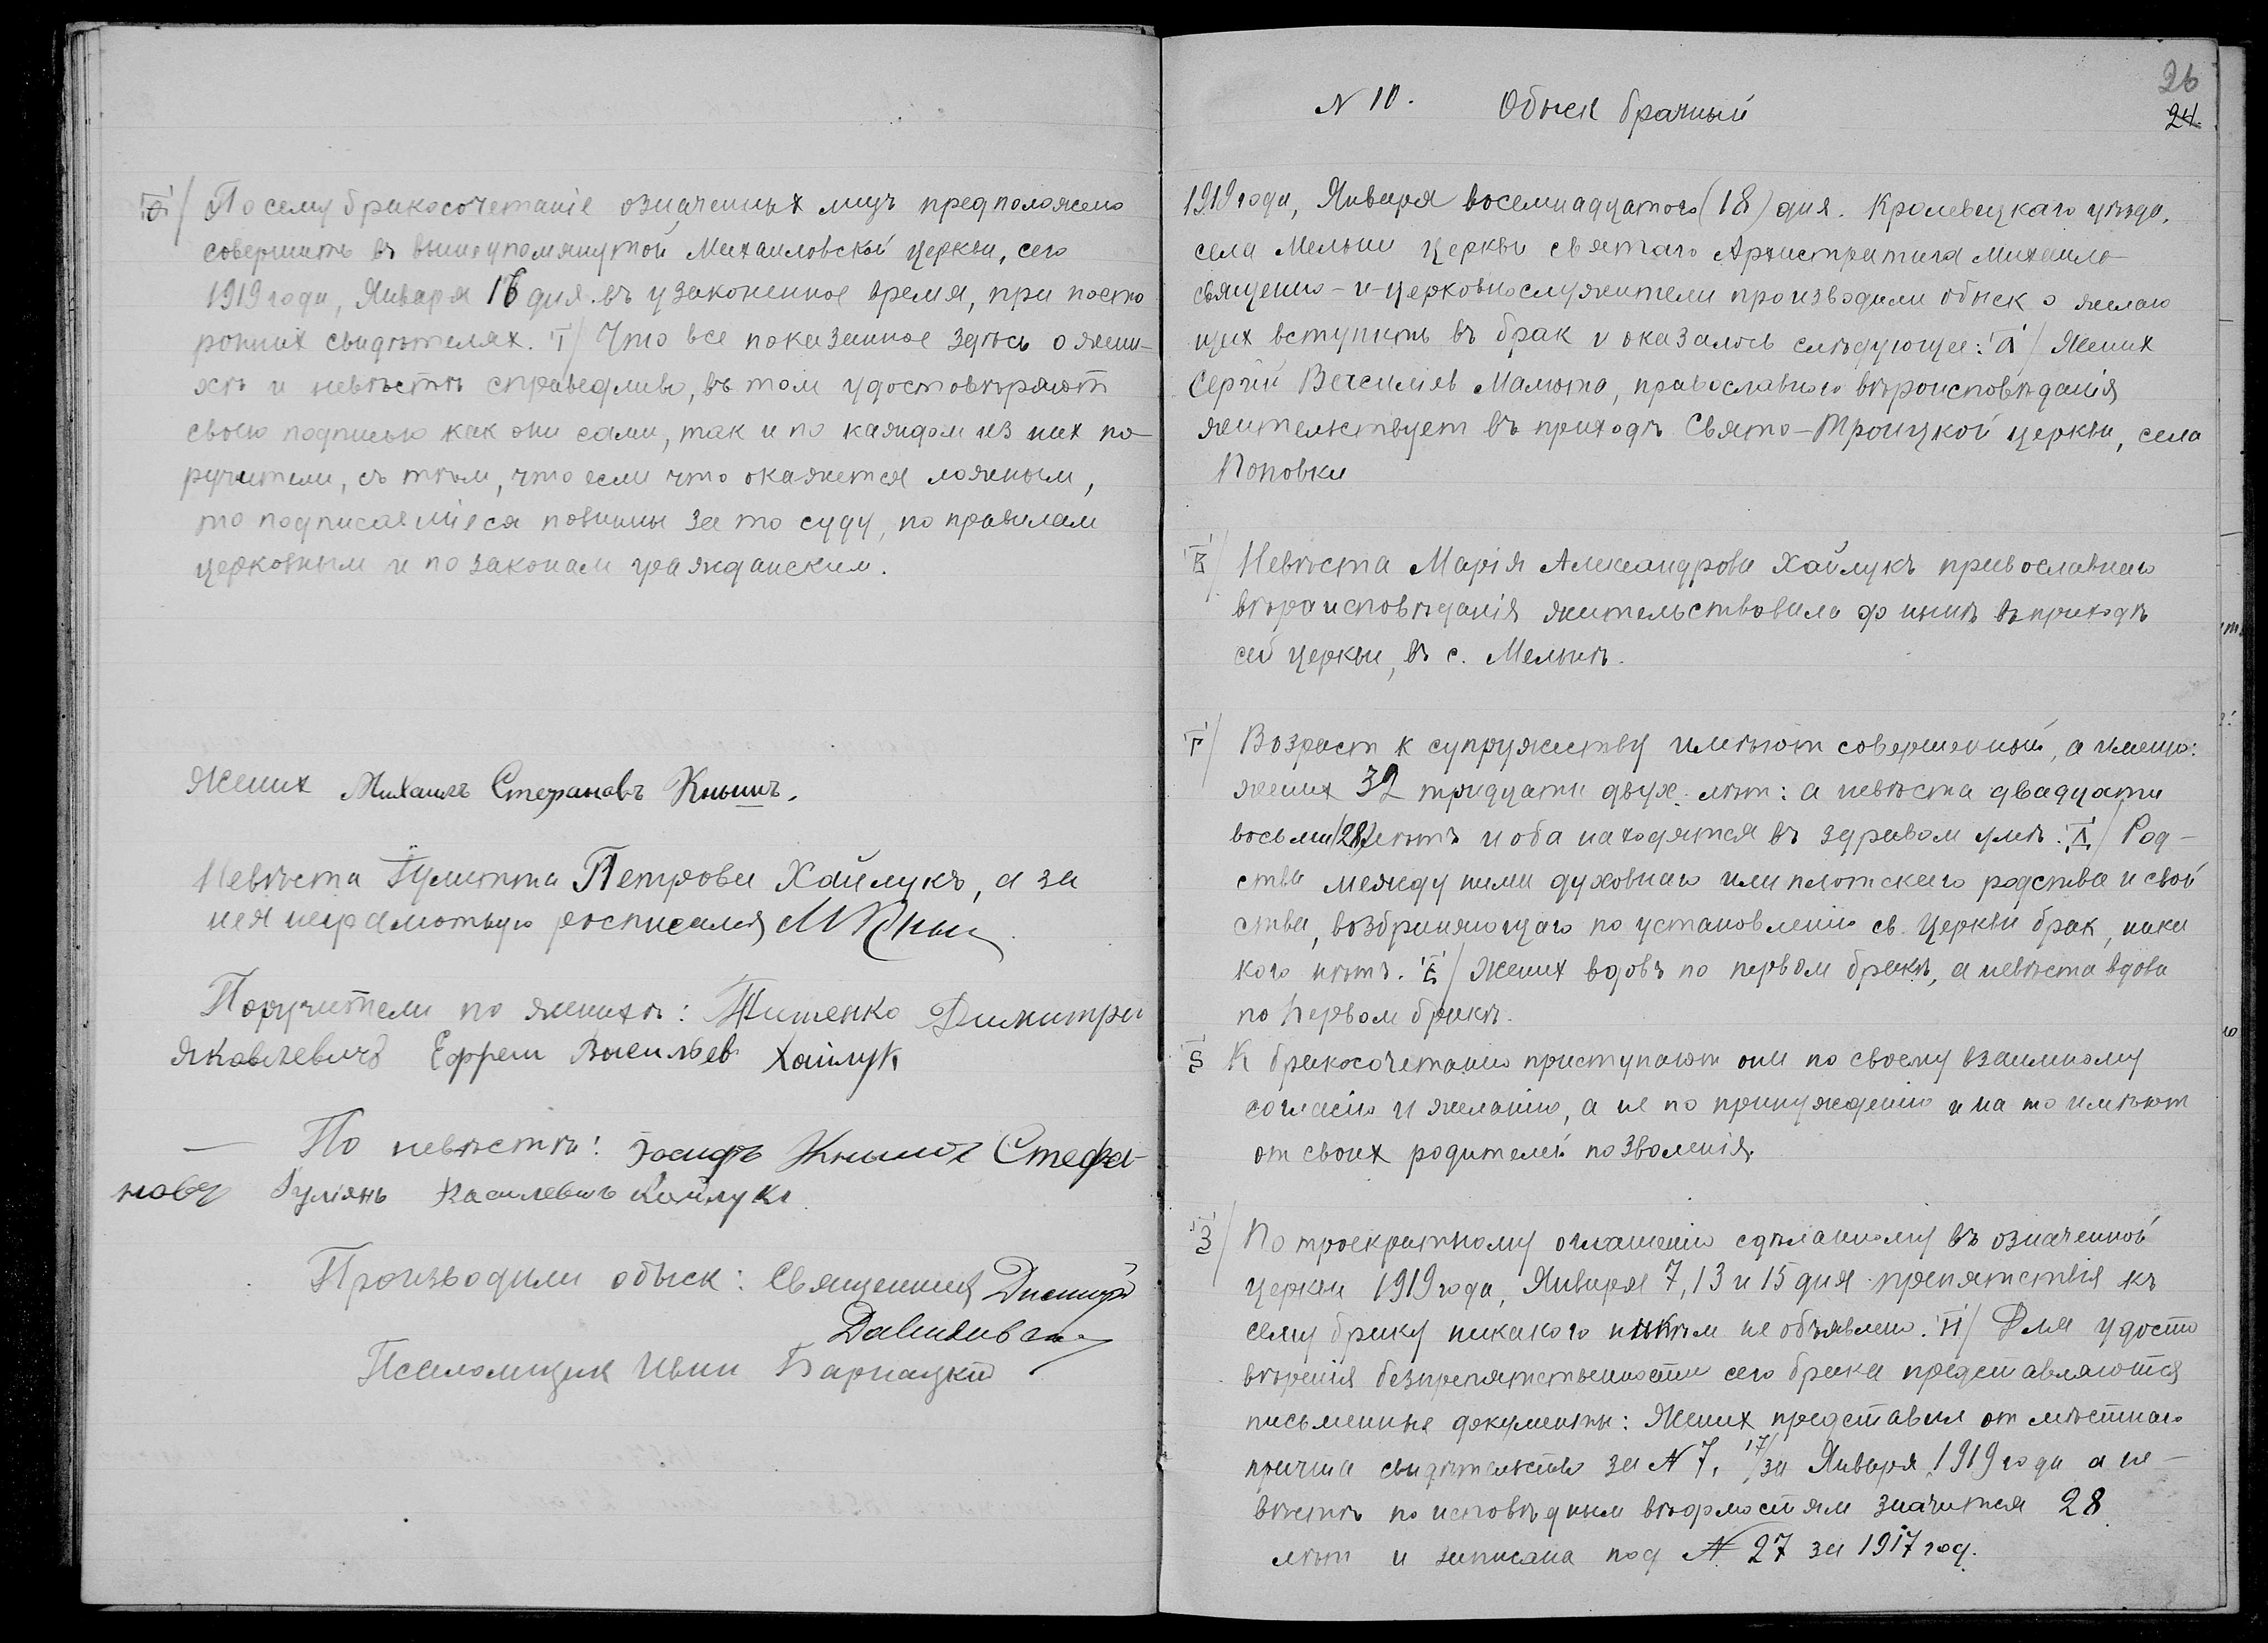 Ѳ/ Посему бракосочетаніе означенных лицъ предположено
совершить въ вышеупомянутой Михаиловской церкви, сего
1919 года, Января 16 дня въ узаконенное время, при посто
ронних свидѣтелях. І/ Что все показанное здѣсь о жени-
хѣ и невѣстѣ справедливо, въ том удостовѣряют
своею подписью как они сами, так и по каждом из них по-
ручители, съ тѣм, что если что окажется ложным,
то подписавшіеся повинны за то суду, по правилам
церковным и по законам гражданским.
Жених Михаилъ Стефановъ Кнышъ.
Невѣста Іулитта Петрова Хайлукъ, а за
нея неграмотную росписался М Кныш
Поручители по женихѣ: Тишенко Димитри
Яковлевичъ Ефрем Васильев Хайлук
— По невѣстѣ: Іосифъ Кнышъ Стефа-
новъ Іуліянъ Василевичъ Хайлукъ
Производили обыск: Священник Дмитрій

Псаломщик Иван Барнацкій
26
24
N 10. Обыск брачный
1919 года, Января восемнадцатого (18) дня. Кролевецкаго уѣзда,
села Мельни церкви святаго Архистратига Михаила
священно-и-церковнослужители производили обыск о желаю
щих вступить въ брак и оказалось слѣдующее: А/ Жених
Сергій Васильев Малюта, православного вѣроисповѣданія
жительствует въ приходѣ Свято-Троицкой церкви, села
Поповки
В/ Невѣста Марія Александрова Хайлукъ православнаго
вѣраисповѣданія жительствовала до нынѣ въ приходѣ
сей церкви, въ с. Мельнѣ.
Г/ Возраст к супружеству имѣют совершенный, а именно:
жених 32 тридцати двух лѣт: а невѣста двадцати
восьми (28) лѣтъ и оба находятся въ здравом умѣ. Д/ Род-
ства между ними духовнаго или плотскаго родства и свой
ства, возбраняющаго по установленію св. Церкви брак, ника
кого нѣтъ. Е/ Жених вдовъ по первом бракѣ, а невѣста вдова
по первом бракѣ.
Ѕ К бракосочетанію приступают они по своему взаимному
согласію и желанію, а не по принужденію и на то имѣют
от своих родителей позволенія.
З/ По троекратному оглашенію сдѣланному въ означенной
церкви 1919 года, Января 7, 13 и 15 дня препятствія къ
сему браку никакого никѣм не объявлено. И/ Для удосто
вѣренія безпрепятственности сего брака представляются
письменные документы: Жених представил от мѣстнаго
причта свидѣтельство за N 7, 17/за Января 1919 года а не-
вѣстѣ по исповѣдным вѣдомостям значится 28
лѣт и записана под N 27 за 1917 год.